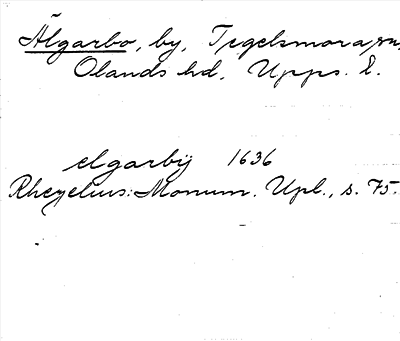 Älgarbo, by, Tegelsmora sn,
Olands hd, Upps. l.
elgarbÿ 1636
Rhezelius: Monum. Upl., s. 75.